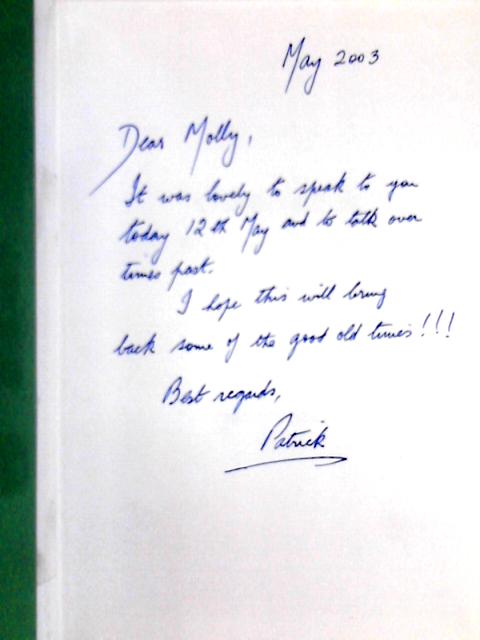 May 2003
Dear Molly,
It was lovely to speak to you
today 12th May and to talk over
times past.
I hope this will bring
back some of the good old times!!!
Best regards,
Patrick